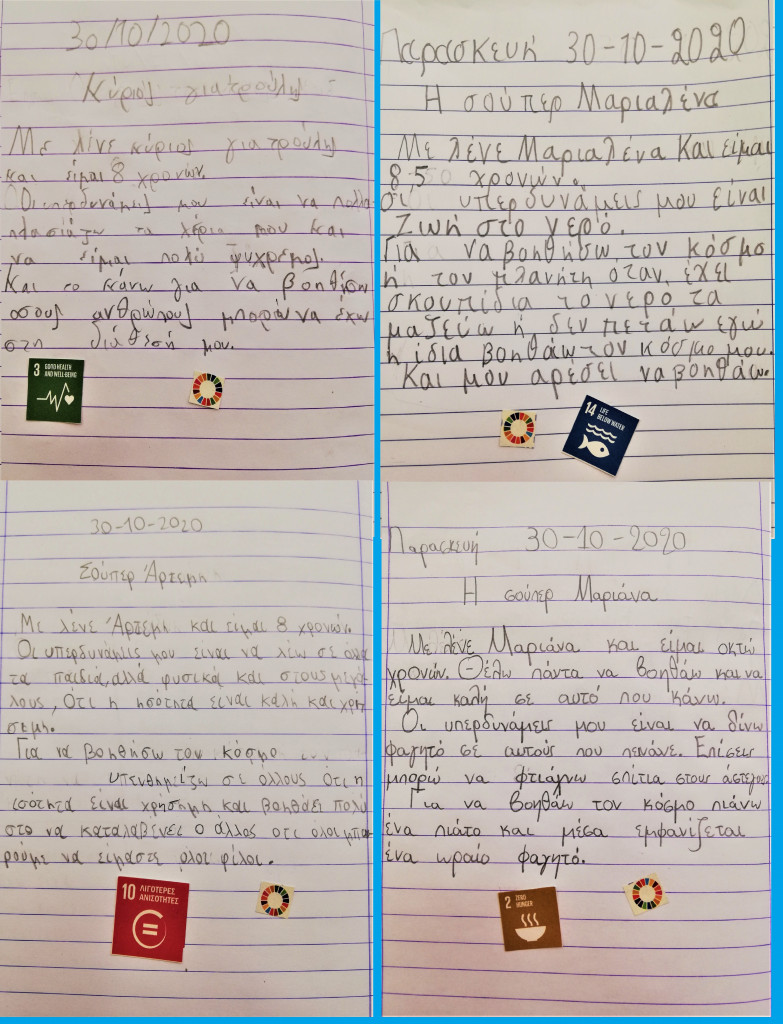 30/10/2020
Κύριος γιατρούλης
Με λένε κύριος γιατρούλης
και είμαι 8 χρονών.
Οι υπερδυνάμεις μου είναι να πολλα
πλασιάζω τα χέρια μου και
να είμαι πολύ ψυχρεμος.
Και το κάνω για να βοηθήσω
οσους ανθρώπους μπορώ να έχω
στη διάθεσή μου.
3 GOOD HEALTH
AND WELL-BEING
Παρασκευή 30-10-2020
Η σούπερ Μαριαλένα
Με λένε Μαριαλένα Και είμαι
8,5 χρονών.
οι υπερδυνάμεις μου είναι
Ζωή στο νερό.
Για να βοηθήσω τον κόσμο
ή τον πλανήτη όταν έχει
σκουπίδια το νερό τα
μαζεύω ή δεν πετάω εγώ
η ίδια βοηθάω τον κόσμο μου.
Και μου αρέσει να βοηθάω.
14 LIFE
BELOW WATER
30-10-2020
Σούπερ Άρτεμη
Με λένε Άρτεμη και είμαι 8 χρονών.
Οι υπερδυνάμεις μου είναι να λέω σε όλα
τα παιδιά, αλλά φυσικά και στους μεγά
λους, ότι η ησότητα είναι καλή και χρη
σιμη.
Για να βοηθήσω τον κόσμο
υπενθημίζω σε όλλους ότι η
ισότητα είναι χρήσημη και βοηθάει πολύ
στο να καταλαβένει ο άλλος οτι όλοι μπο
ρούμε να είμαστε όλοι φίλοι.
10 ΛΙΓΟΤΕΡΕΣ
ΑΝΙΣΟΤΗΤΕΣ
Παρασκευή 30-10-2020
Η σούπερ Μαριάνα
Με λένε Μαριάνα και είμαι οκτώ
χρονών. Θέλω πάντα να βοηθάω και να
είμαι καλή σε αυτό που κάνω.
Οι υπερδυνάμεις μου είναι να δίνω
φαγητό σε αυτούς που πεινάνε. Επίσεις
μπορώ να φτιάχνω σπίτια στους άστεγους
Για να βοηθάω τον κόσμο πιάνω
ένα πιάτο και μέσα εμφανίζεται
ένα ωραίο φαγητό.
2 ZERO
HUNGER